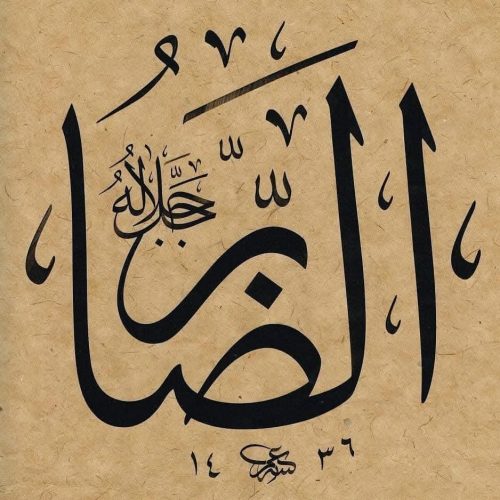 الضَّارُّ
جَلَّ جَلَالُهُ
١٤ ٣٦